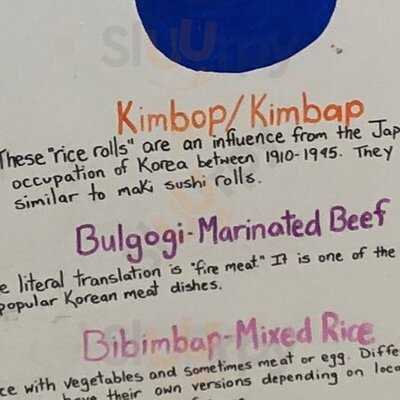 Kimbop/Kimbap
These "rice rolls" are an influence from the Jap
occupation of Korea between 1910-1945. They
similar to maki sushi rolls.
Bulgogi-Marinated Beef
e literal translation is "fire meat." It is one of the
popular Korean meat dishes.
Bibimbap-Mixed Rice
ce with vegetables and sometimes meat or egg. Diffe
have their own versions depending on loca